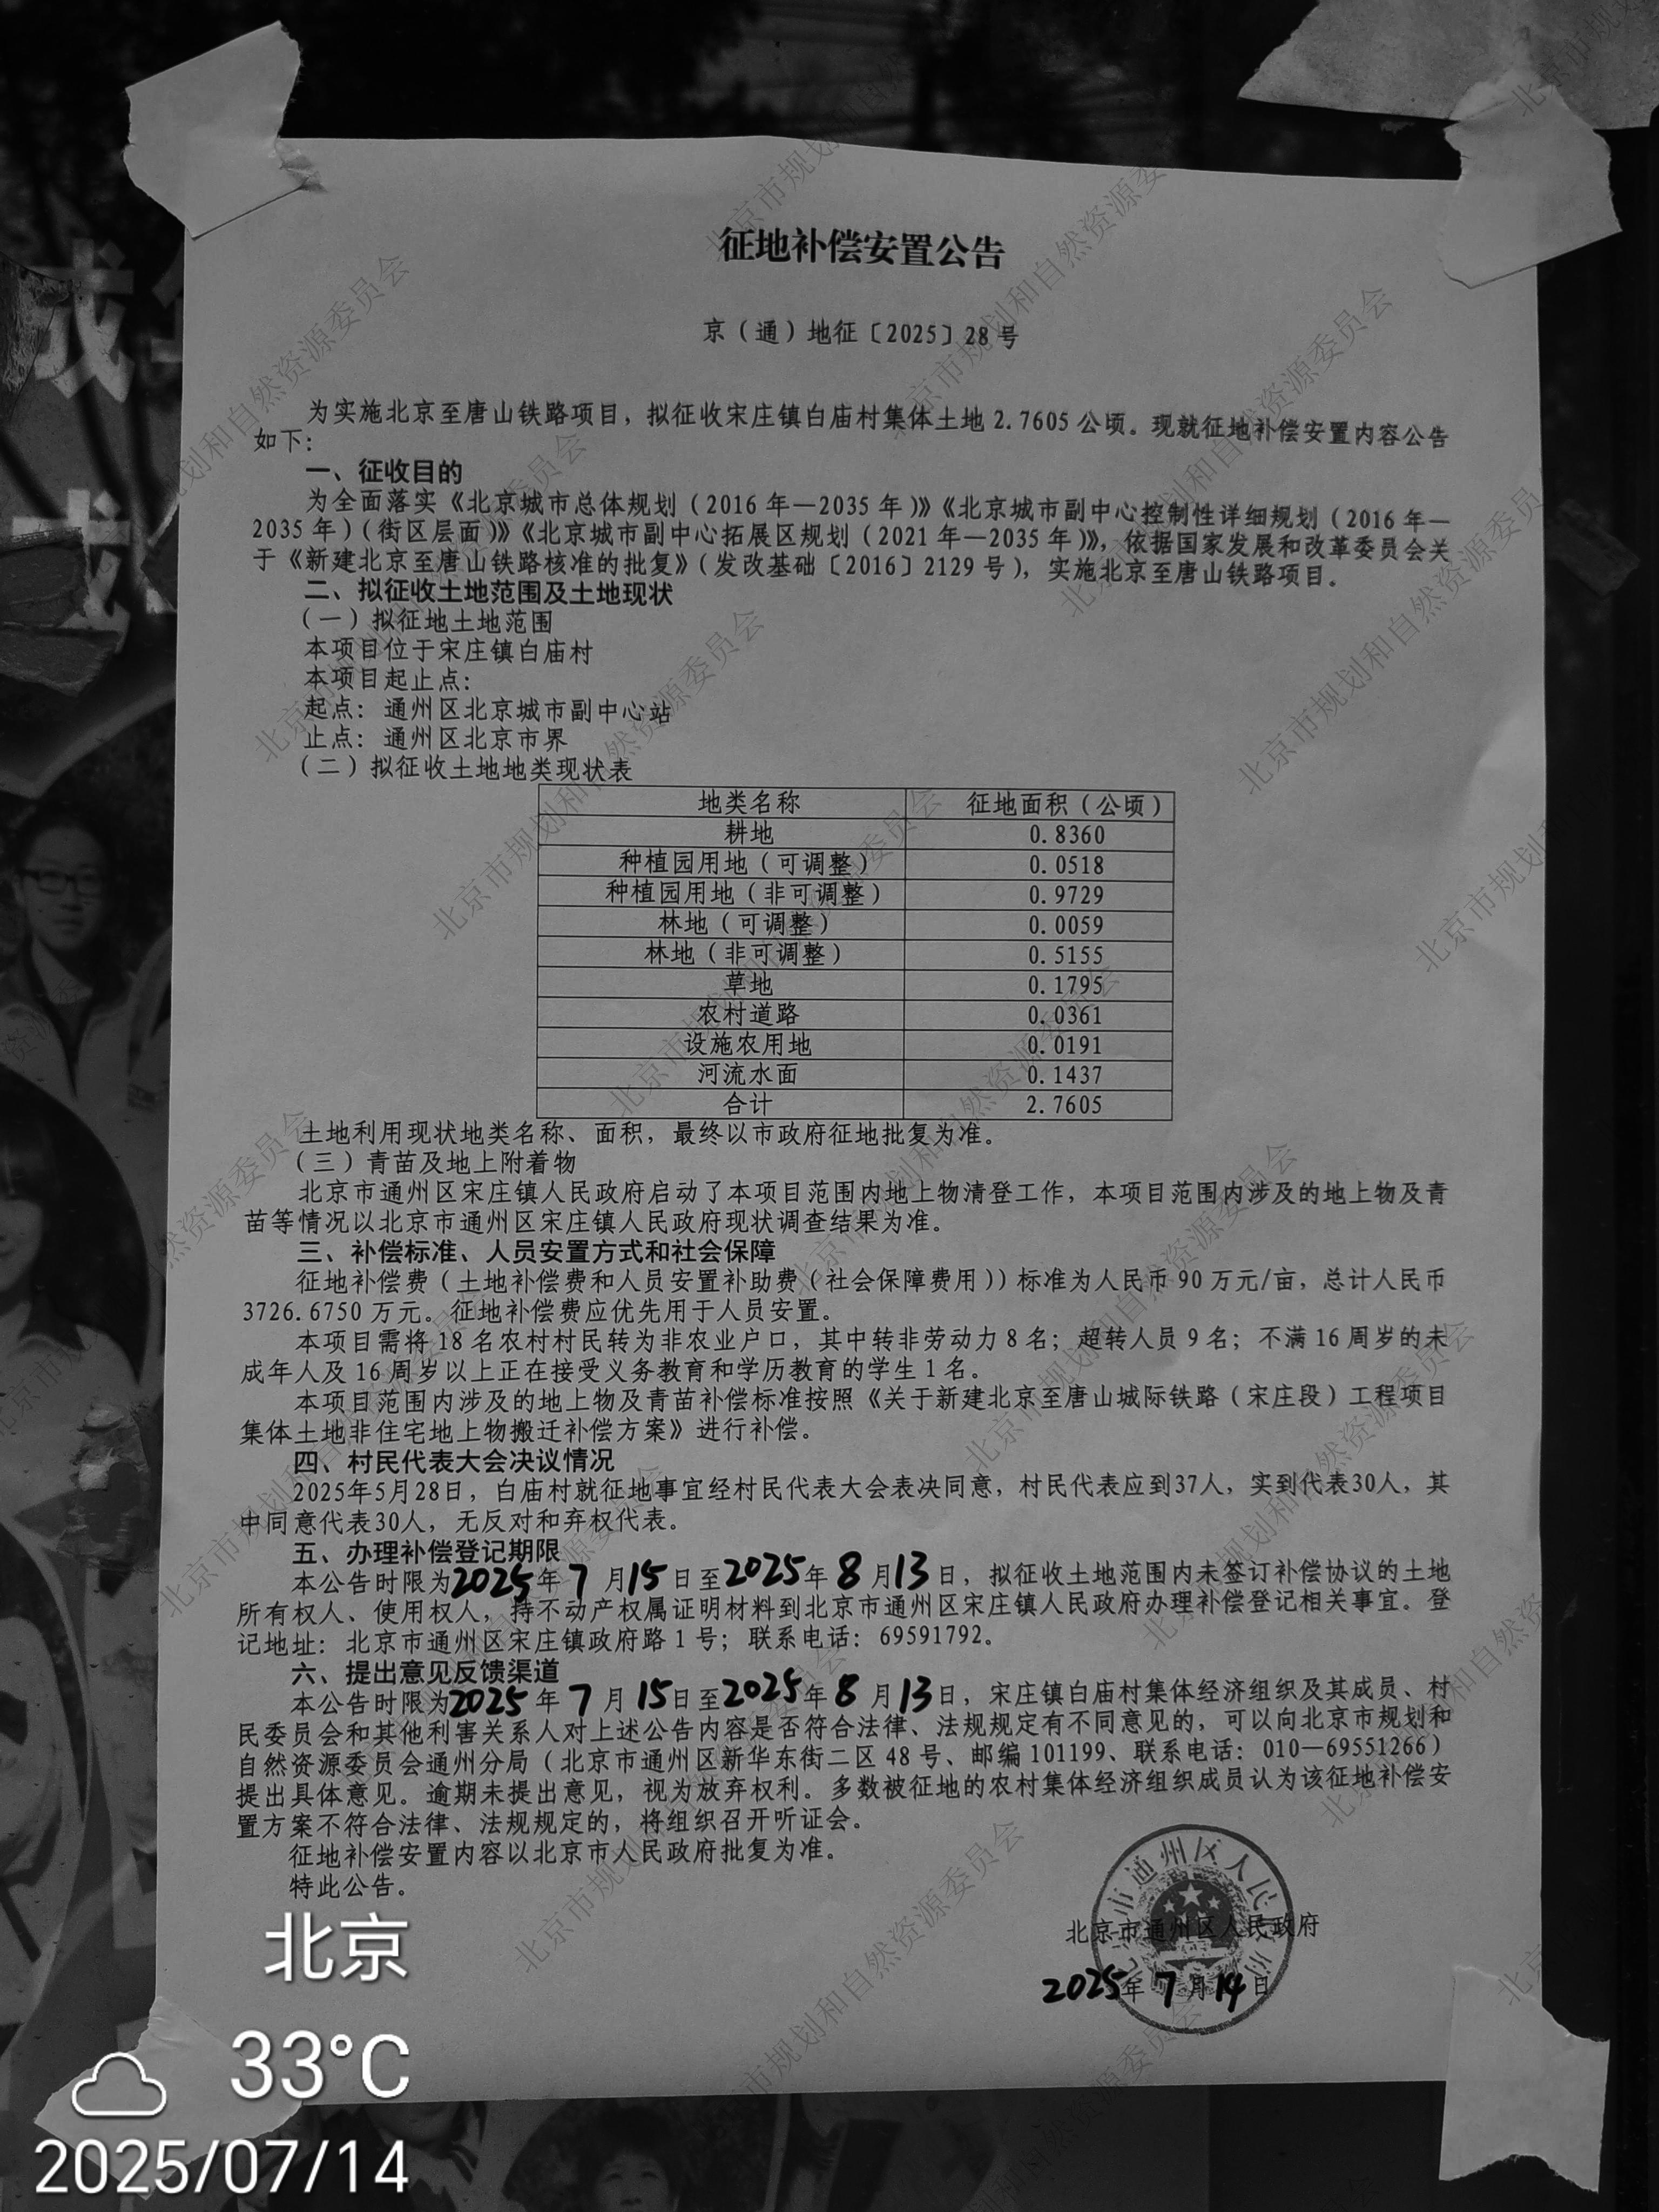 征地补偿安置公告
京（通）地征〔2025〕28号
为实施北京至唐山铁路项目，拟征收宋庄镇白庙村集体土地2.7605公顷。现就征地补偿安置内容公告
如下：
一、征收目的
为全面落实《北京城市总体规划（2016年—2035年）》《北京城市副中心控制性详细规划（2016年—
2035年）（街区层面）》《北京城市副中心拓展区规划（2021年—2035年）》，依据国家发展和改革委员会关
于《新建北京至唐山铁路核准的批复》（发改基础〔2016〕2129号），实施北京至唐山铁路项目。
二、拟征收土地范围及土地现状
（一）拟征地土地范围
本项目位于宋庄镇白庙村
本项目起止点：
起点：通州区北京城市副中心站
止点：通州区北京市界
（二）拟征收土地地类现状表
地类名称 征地面积（公顷）
耕地 0.8360
种植园用地（可调整） 0.0518
种植园用地（非可调整） 0.9729
林地（可调整） 0.0059
林地（非可调整） 0.5155
草地 0.1795
农村道路 0.0361
设施农用地 0.0191
河流水面 0.1437
合计 2.7605
土地利用现状地类名称、面积，最终以市政府征地批复为准。
（三）青苗及地上附着物
北京市通州区宋庄镇人民政府启动了本项目范围内地上物清登工作，本项目范围内涉及的地上物及青
苗等情况以北京市通州区宋庄镇人民政府现状调查结果为准。
三、补偿标准、人员安置方式和社会保障
征地补偿费（土地补偿费和人员安置补助费（社会保障费用））标准为人民币90万元/亩，总计人民币
3726.6750万元。征地补偿费应优先用于人员安置。
本项目需将18名农村村民转为非农业户口，其中转非劳动力8名；超转人员9名；不满16周岁的未
成年人及16周岁以上正在接受义务教育和学历教育的学生1名。
本项目范围内涉及的地上物及青苗补偿标准按照《关于新建北京至唐山城际铁路（宋庄段）工程项目
集体土地非住宅地上物搬迁补偿方案》进行补偿。
四、村民代表大会决议情况
2025年5月28日，白庙村就征地事宜经村民代表大会表决同意，村民代表应到37人，实到代表30人，其
中同意代表30人，无反对和弃权代表。
五、办理补偿登记期限
本公告时限为2025年7月15日至2025年8月13日，拟征收土地范围内未签订补偿协议的土地
所有权人、使用权人，持不动产权属证明材料到北京市通州区宋庄镇人民政府办理补偿登记相关事宜。登
记地址：北京市通州区宋庄镇政府路1号；联系电话：69591792。
六、提出意见反馈渠道
本公告时限为2025年7月15日至2025年8月13日，宋庄镇白庙村集体经济组织及其成员、村
民委员会和其他利害关系人对上述公告内容是否符合法律、法规规定有不同意见的，可以向北京市规划和
自然资源委员会通州分局（北京市通州区新华东街二区48号、邮编101199、联系电话：010—69551266）
提出具体意见。逾期未提出意见，视为放弃权利。多数被征地的农村集体经济组织成员认为该征地补偿安
置方案不符合法律、法规规定的，将组织召开听证会。
征地补偿安置内容以北京市人民政府批复为准。
特此公告。
北京市通州区人民政府
2025年7月14日
北京
33°C
2025/07/14